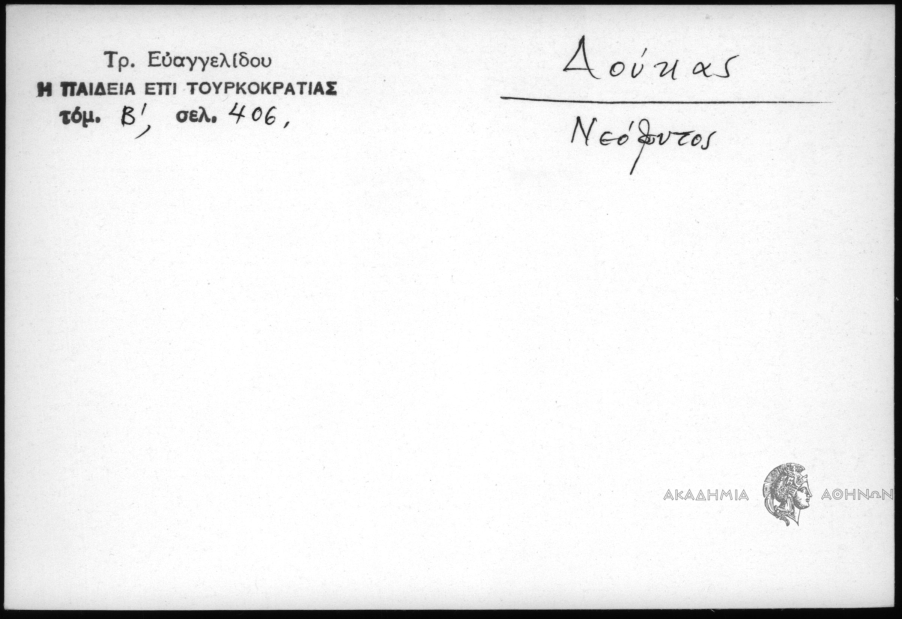 Τρ. Εὐαγγελίδου
Η ΠΑΙΔΕΙΑ ΕΠΙ ΤΟΥΡΚΟΚΡΑΤΙΑΣ
τόμ. Β', σελ. 406,
Δούκας
Νεόφυτος
ΑΚΑΔΗΜΙΑ ΑΘΗΝΩΝ